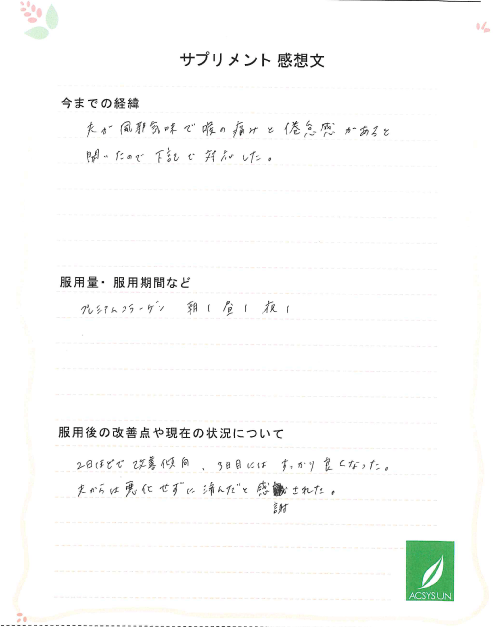 サプリメント 感想文
今までの経緯
夫が風邪気味で喉の痛みと倦怠感があると
聞いたので下記で対応した。
服用量・服用期間など
プレミアムコラーゲン 朝1 昼1 夜1
服用後の改善点や現在の状況について
2日ほどで改善傾向、3日目にはすっかり良くなった。
夫からは悪化せずに済んだと感謝された。
ACSYSUN